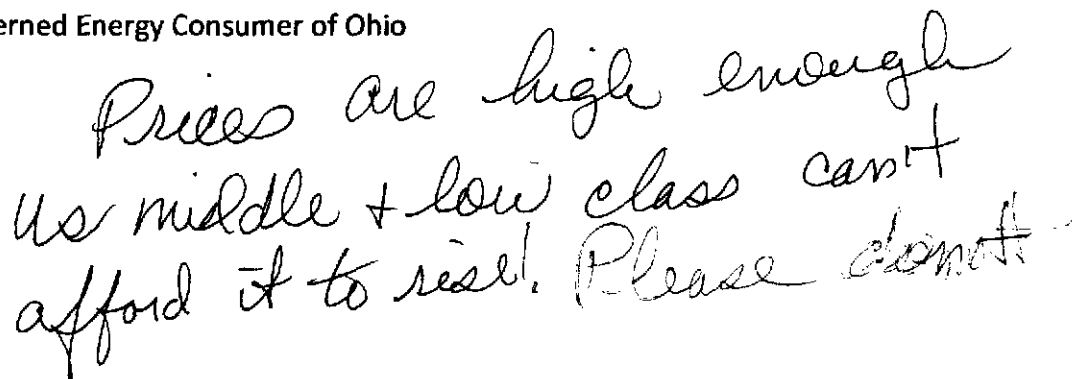 erned Energy Consumer of Ohio
Prices are high enough
us middle + low class can't
afford it to rise! Please don't